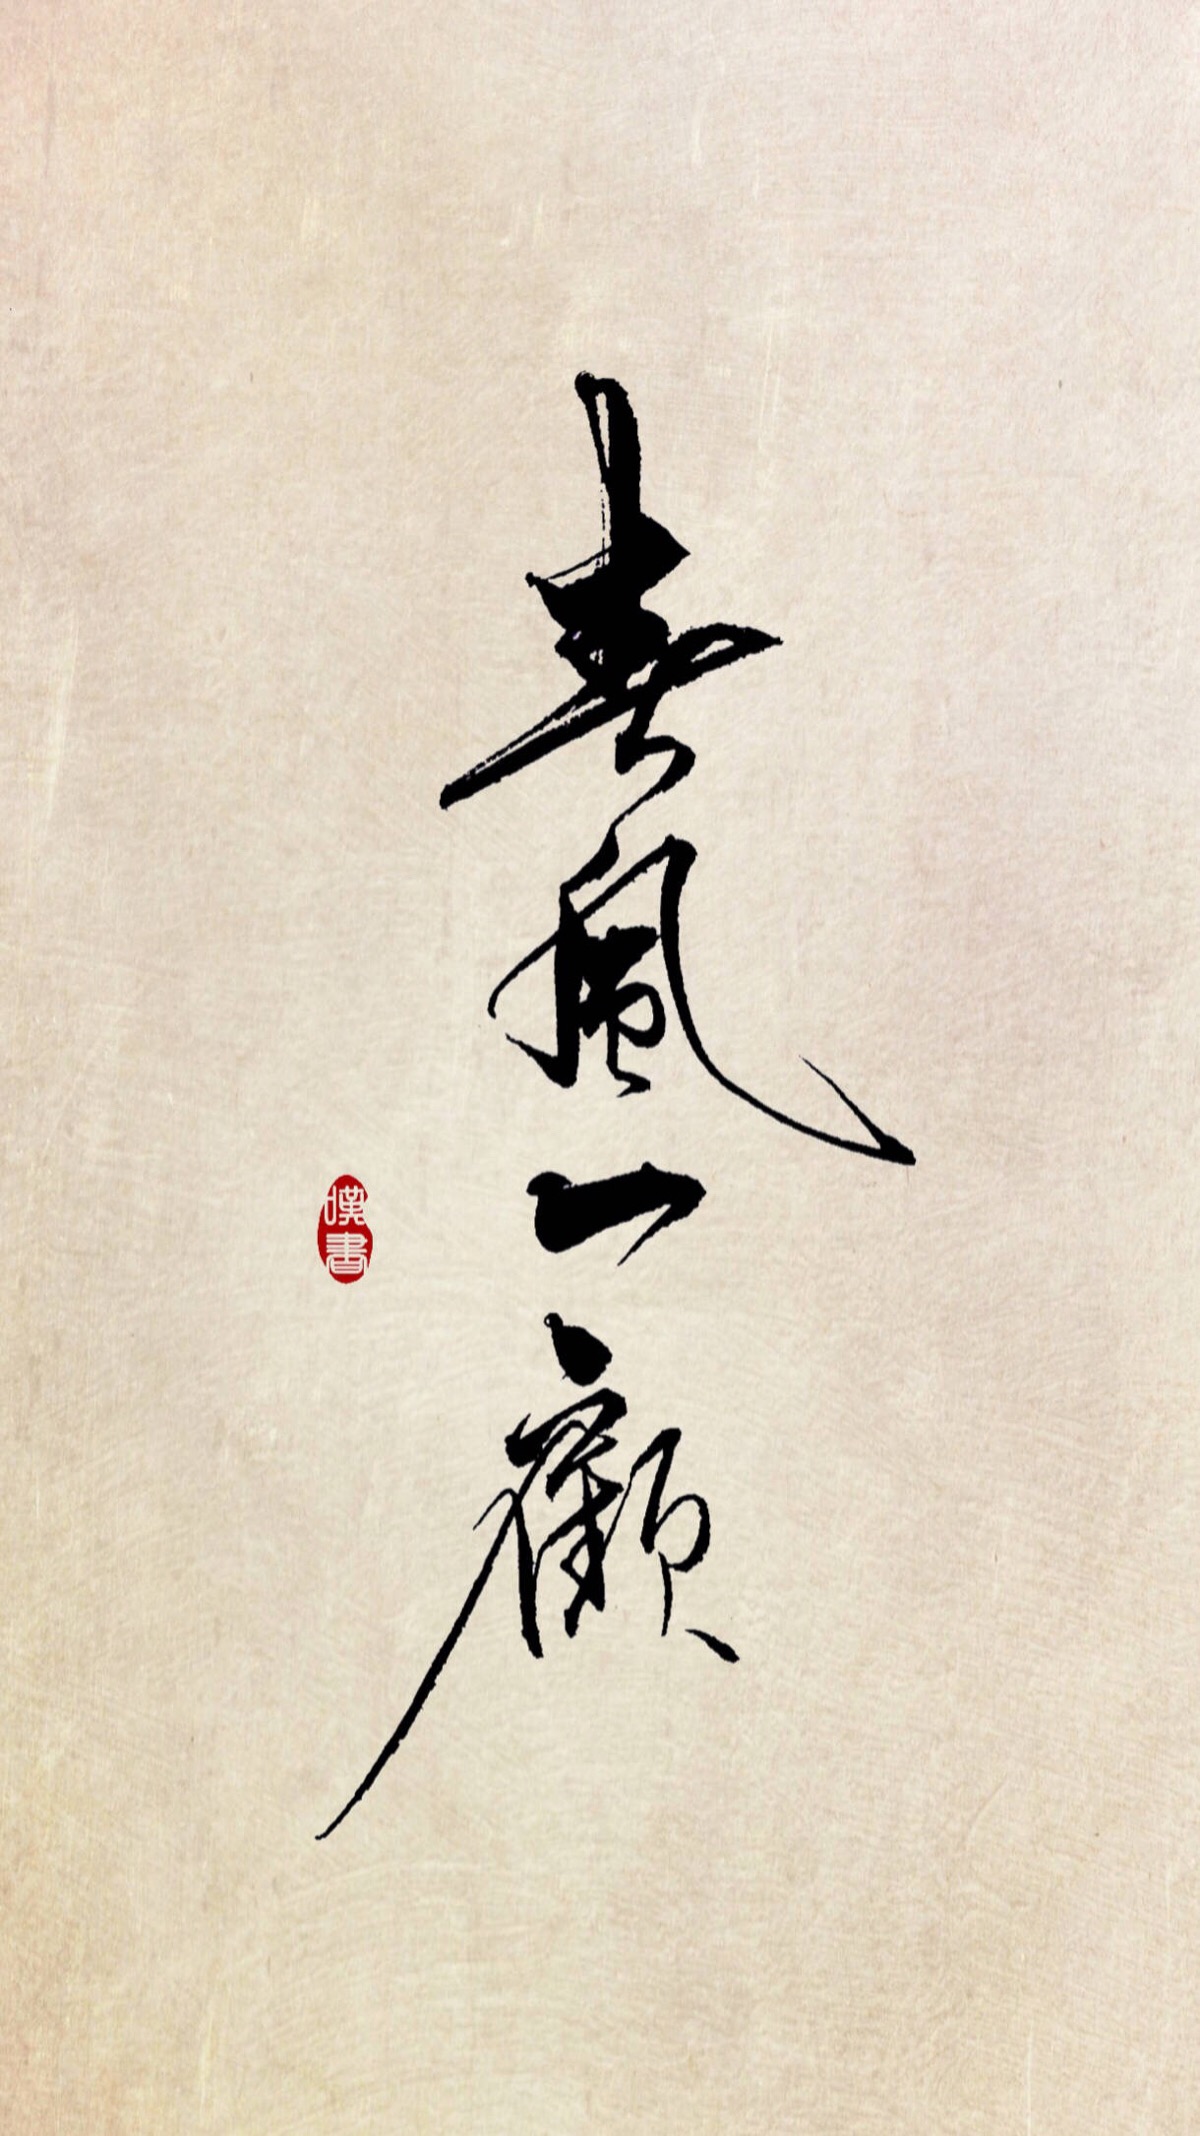 春風一顧
嘆書